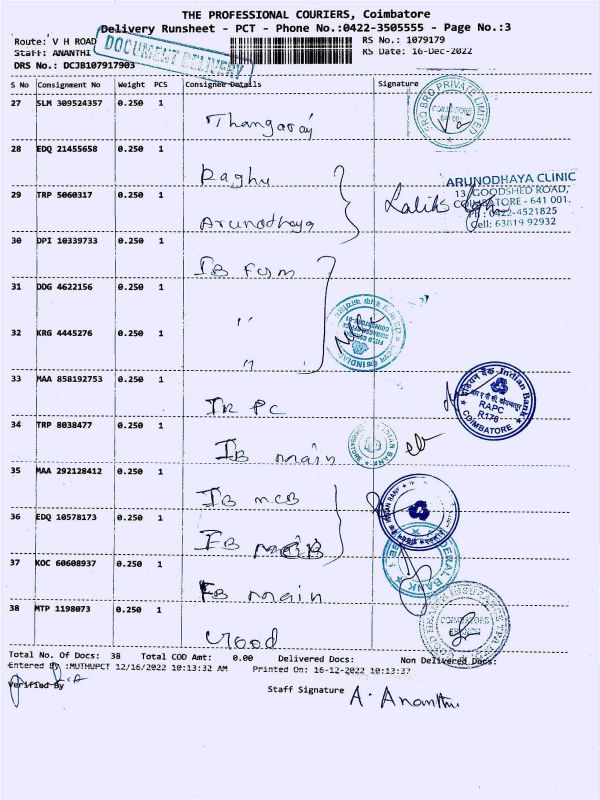 THE PROFESSIONAL COURIERS, Coimbatore
Delivery Runsheet - PCT - Phone No.:0422-3505555 - Page No.:3
Route: V H ROAD RS No.: 1079179
Staff: ANANTHI RS Date: 16-Dec-2022
DOCUMENT DELIVERY
DRS No.: DCJB107917903
S No Consignment No Weight PCS Consignee Details Signature
27 SLM 309524357 0.250 1 Thangaraj
BRO PRIVATE LIMITED
COIMBATORE
28 EDQ 21455658 0.250 1 Raghu
ARUNODHAYA CLINIC
13, GOODSHED ROAD,
COIMBATORE - 641 001.
Ph : 0422-4521825
Cell: 63819 92932
29 TRP 5060317 0.250 1 Arunodhaya
30 DPI 10339733 0.250 1 IB
31 DDG 4622156 0.250 1 "
32 KRG 4445276 0.250 1 "
33 MAA 858192753 0.250 1 PC
Indian Bank
RAPC
R176
COIMBATORE
34 TRP 8038477 0.250 1 IB main
35 MAA 292128412 0.250 1 IB MCB
36 EDQ 10578173 0.250 1
37 KOC 60608937 0.250 1 FB main
38 MTP 1198073 0.250 1
COIMBATORE
BRANCH
Total No. Of Docs: 38 Total COD Amt: 0.00 Delivered Docs: Non Delivered Docs:
Entered By :MUTHUPCT 12/16/2022 10:13:32 AM Printed On: 16-12-2022 10:13:37
Verified By
Staff Signature A. Ananthi